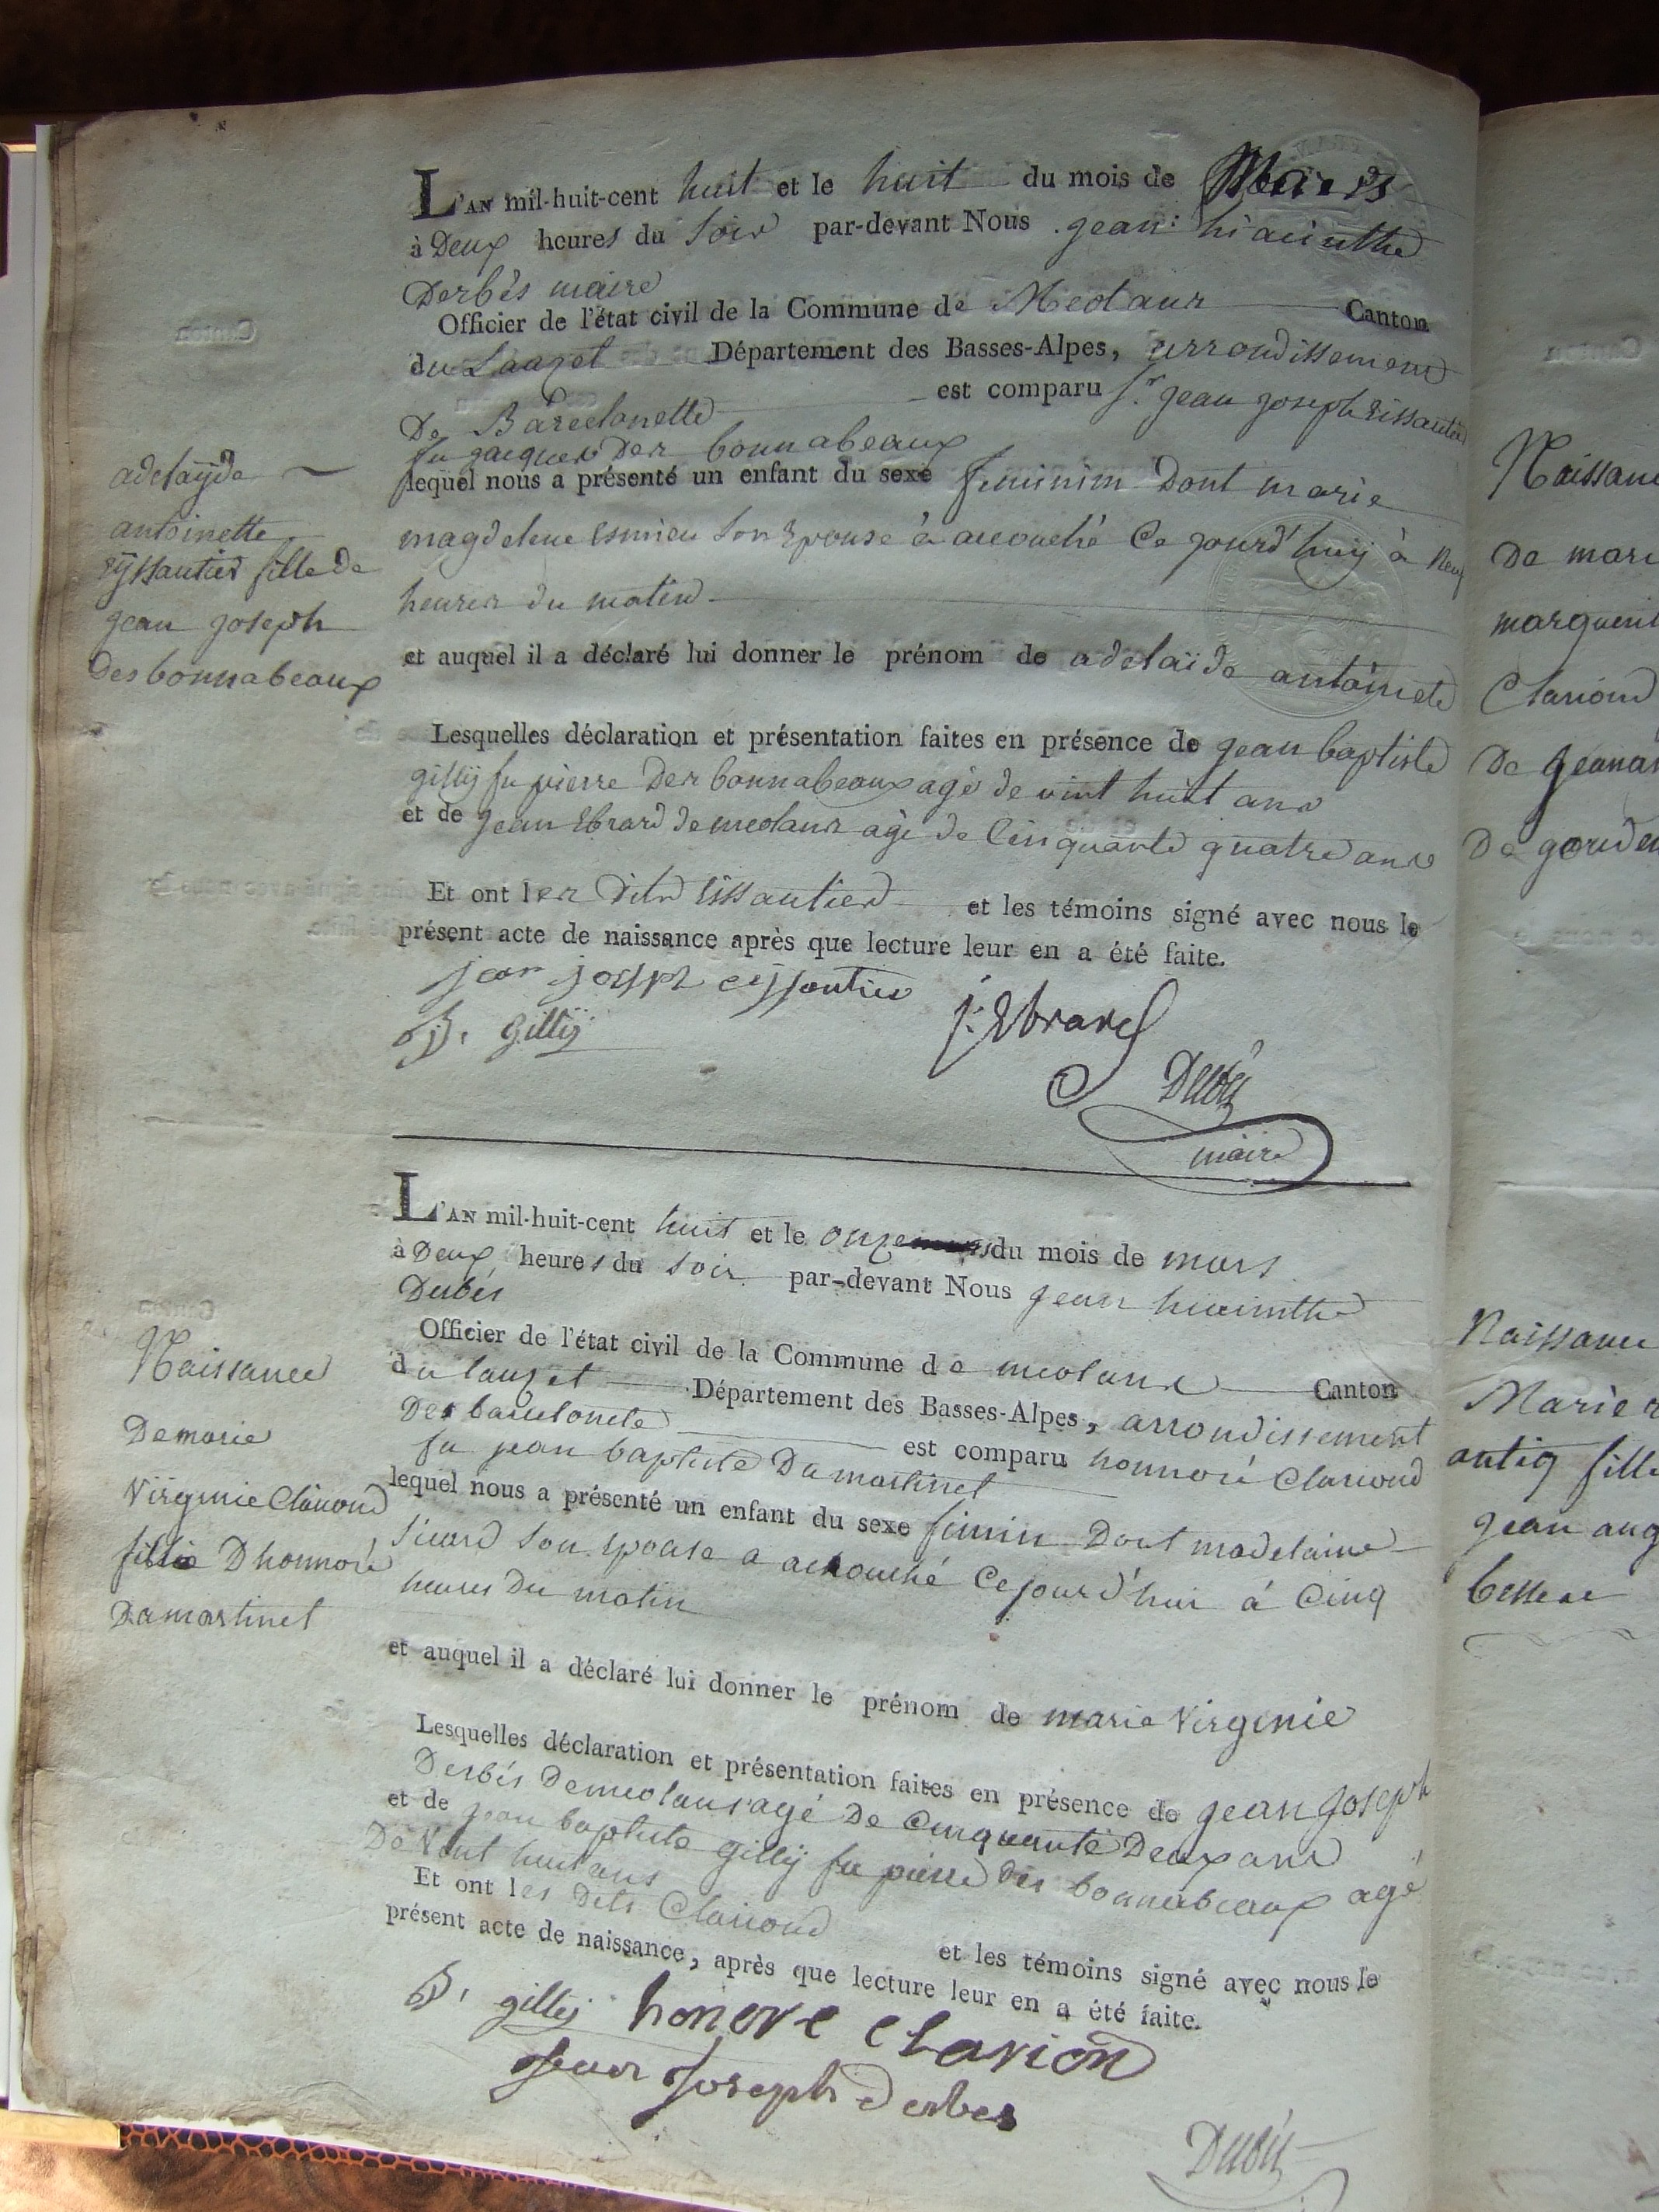 L'AN mil-huit-cent huit et le huit du mois de Mars
à Deux heures du Soir par-devant Nous jean hiacinthe
Derbés maire
Officier de l'état civil de la Commune de Meolans Canton
du Lauzet Département des Basses-Alpes, arrondissement
De Barcelonette est comparu Sr. jean joseph Eissautier
fu jacques Des bonnabeaux
lequel nous a présenté un enfant du sexe feminim Dont marie
magdeleine Esmieu Son Epouse à accouché Ce jourd'huy à Neuf
heures du matin
et auquel il a déclaré lui donner le prénom de adelaïde antoinete
Lesquelles déclaration et présentation faites en présence de jean baptiste
gillÿ fu pierre Des bonnabeaux agé de vint huit ans
et de jean Ebrard de meolans agé de Cinquante quatre ans
Et ont les Dits Eissautier et les témoins signé avec nous le
présent acte de naissance après que lecture leur en a été faite.
jean joseph eissautier
B. gillÿ
j. Ebrard
Derbés
maire
adelaÿde
antoinette
Eÿssautier fille de
jean joseph
Des bonnabeaux
L'AN mil-huit-cent huit et le onze du mois de mars
à Deux heures du Soir par-devant Nous jean hiacinthe
Derbés
Officier de l'état civil de la Commune de meolans Canton
du lauzet Département des Basses-Alpes, arrondissement
De barcelonete est comparu honnoré Clariond
fu jean baptiste Du martinet
lequel nous a présenté un enfant du sexe feminin Dont madelaine
Sicard Son epouse a accouché Ce jourd'hui à Cinq
heures Du matin
et auquel il a déclaré lui donner le prénom de marie Virginie
Lesquelles déclaration et présentation faites en présence de jean joseph
Derbés De meolans agé De Cinquante Deux ans
et de jean baptiste gillÿ fu pierre des bonnabeaux agé
De Vint huit ans
Et ont les Dits Clariond et les témoins signé avec nous le
présent acte de naissance, après que lecture leur en a été faite.
B. gillÿ honore clarion
Jean Joseph Derbes
Derbés
Naissance
De marie
Virginie Clariond
fillie D honnoré
Du martinet
De mari
marguerit
Clariond
Naissance
Marie
antiq fille
jean aug